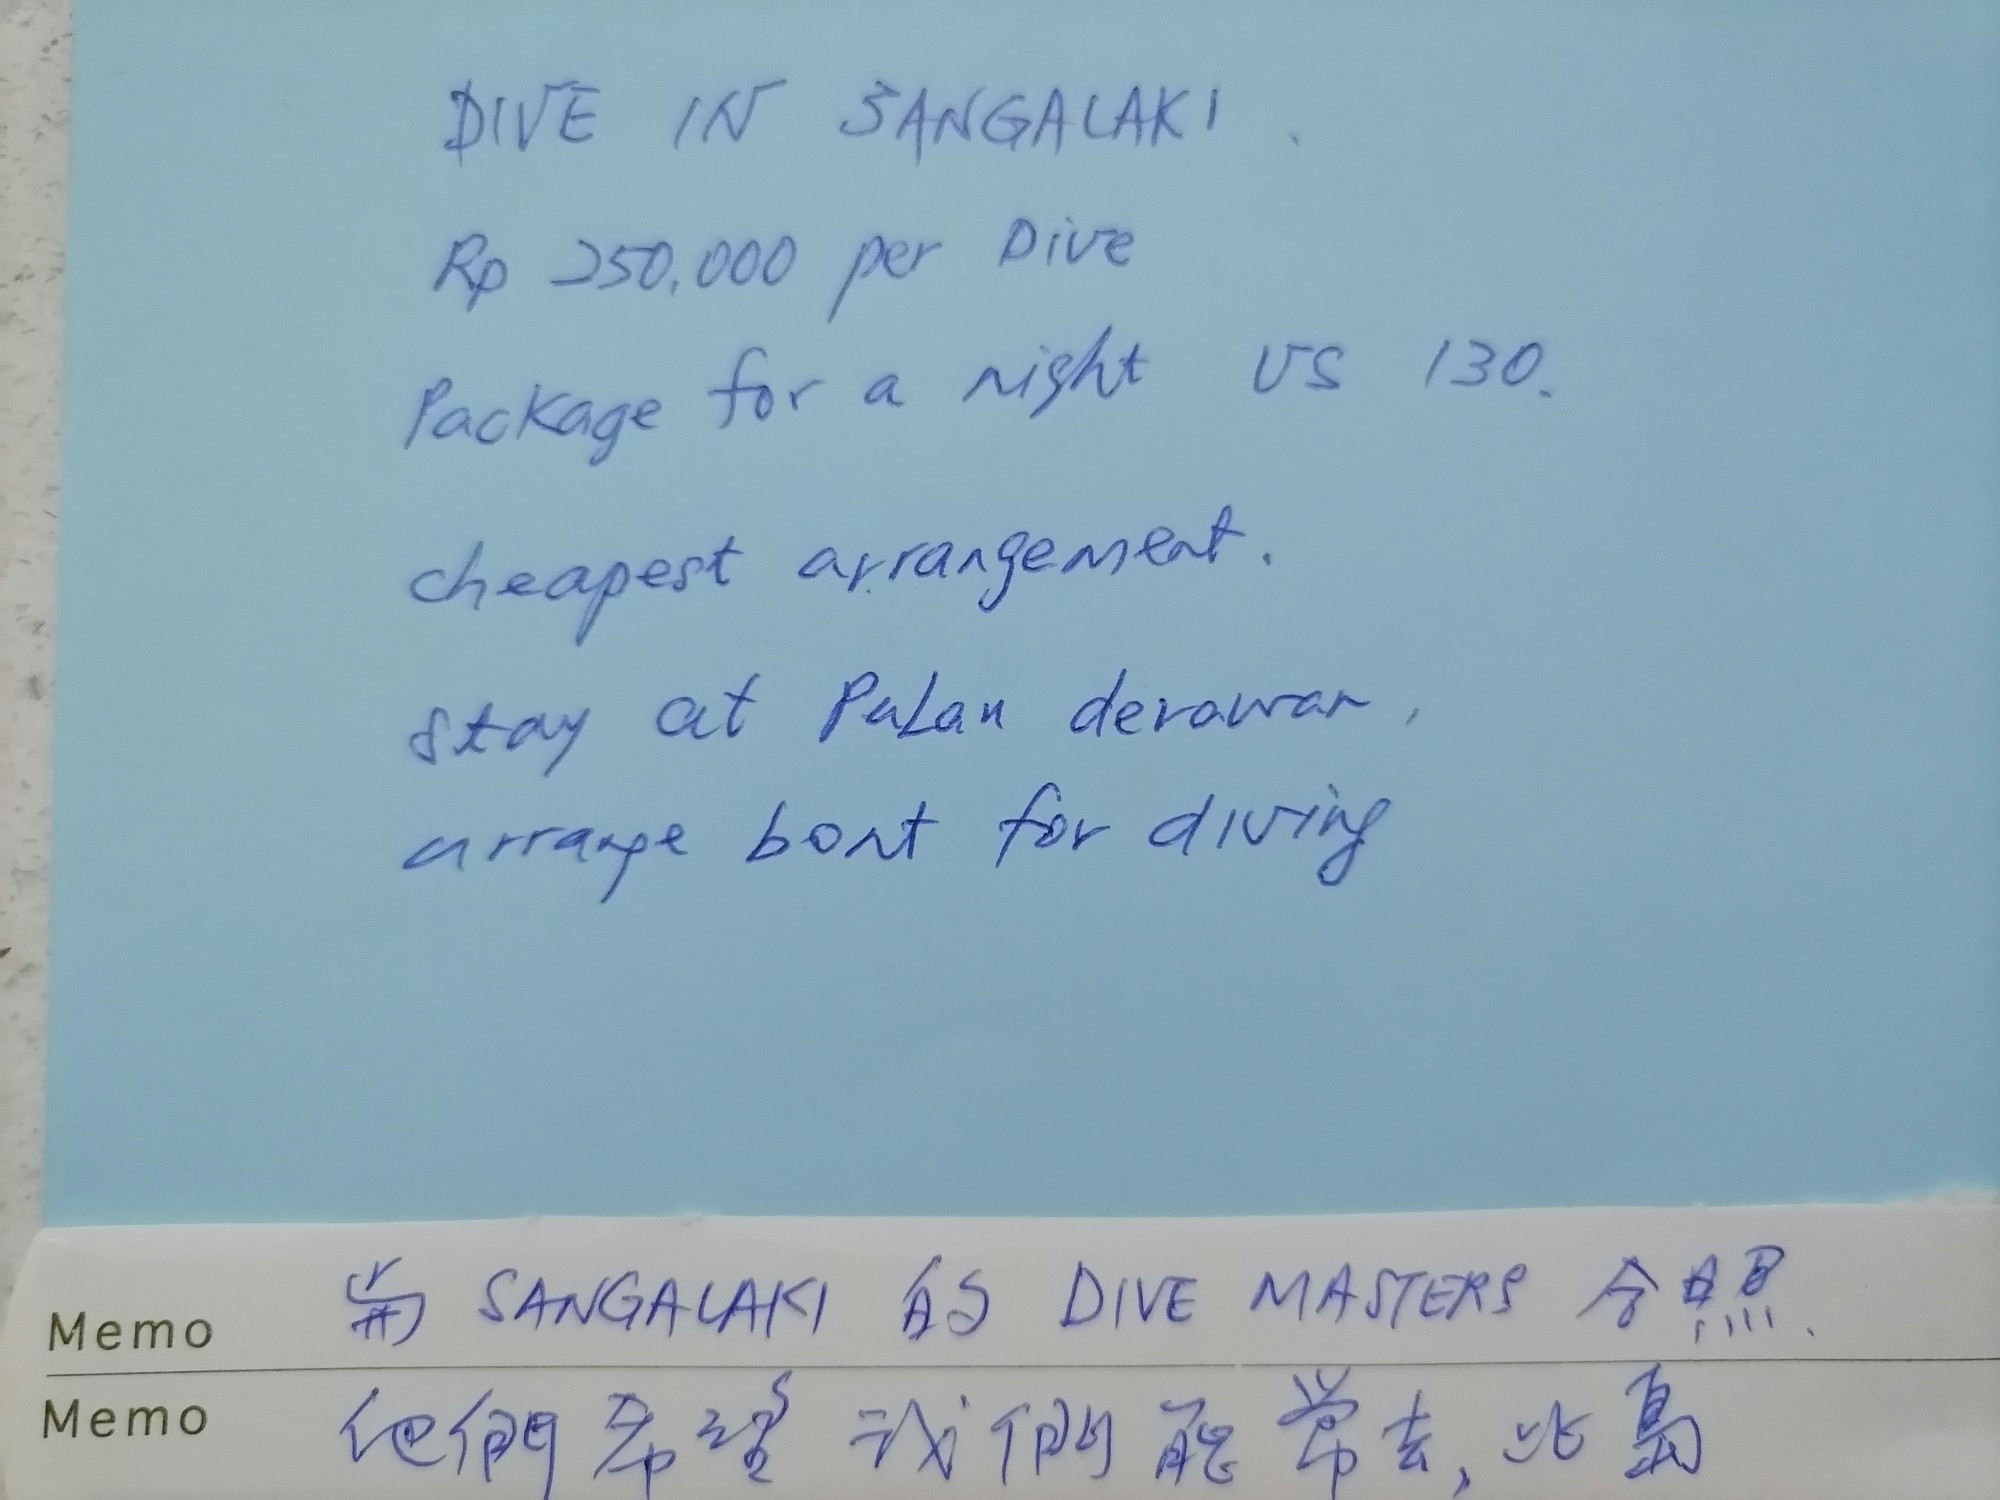 DIVE IN SANGALAKI.
Rp 250,000 per Dive
Package for a night US 130.
cheapest arrangement.
stay at PuLau derawan,
arrange boat for diving
Memo 與 SANGALAKI 的 DIVE MASTERS 合照.
Memo 他們希望我們能常去, 此島